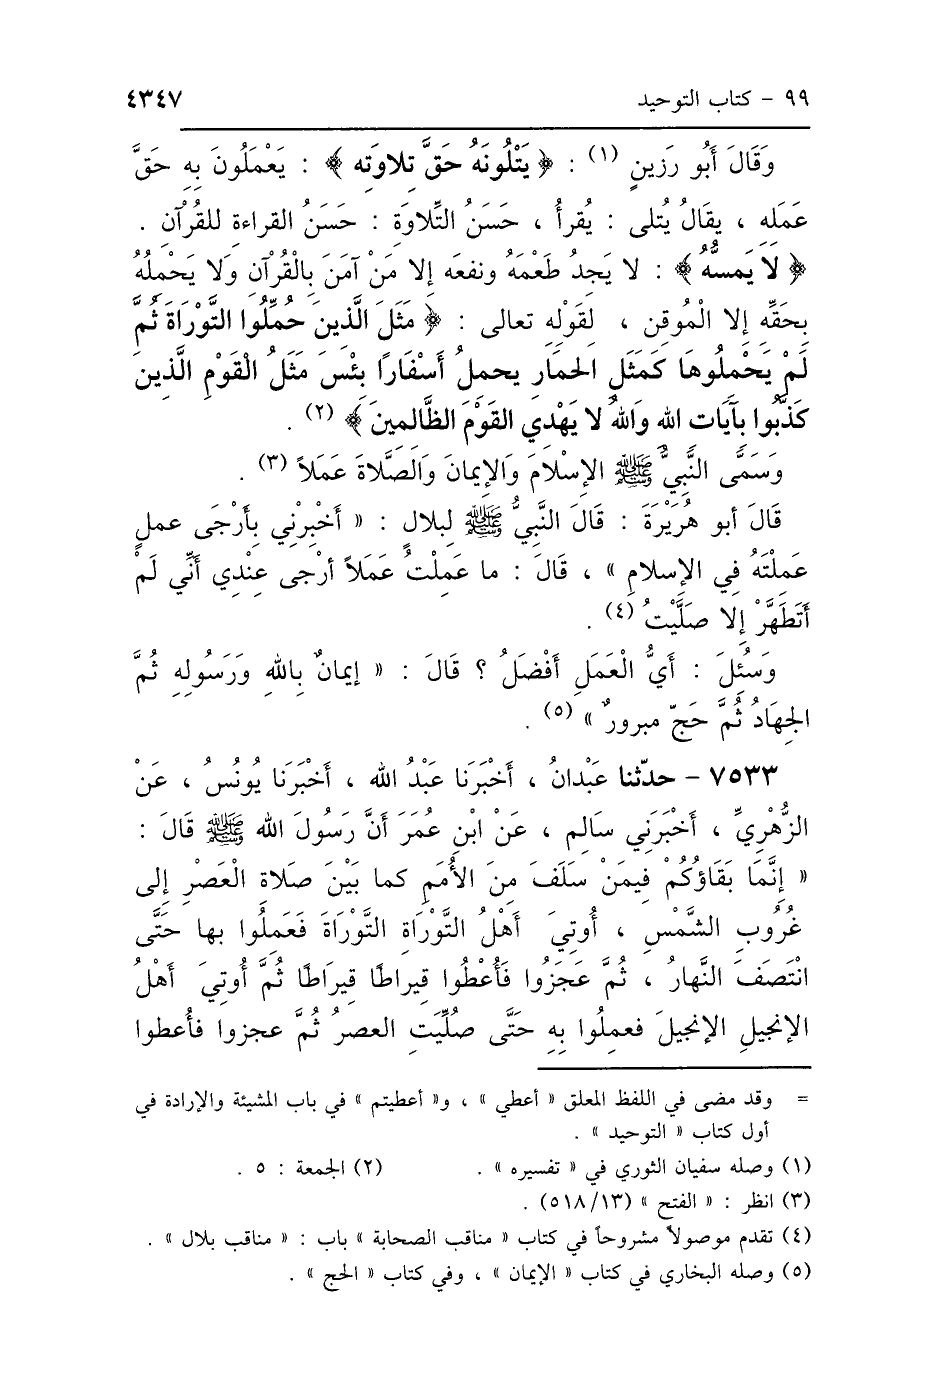 ٩٩ - كتاب التوحيد ٤٣٤٧
وَقَالَ أَبُو رَزِينٍ (١) : ﴿ يَتْلُونَهُ حَقَّ تلاوَته ﴾ : يَعْمَلُونَ بِهِ حَقَّ
عَمَله ، يقَالُ يُتلى : يُقرأُ ، حَسَنُ التِّلاوَة : حَسَنُ القراءة للقُرْآن .
﴿ لاَ يَمسهُّ ﴾ : لا يَجدُ طَعْمَهُ ونفعَه إلا مَنْ آمَنَ بِالْقُرْآنِ وَلا يَحْملُهُ
بِحَقِّه إلا الْمُوقن ، لقَوْلِهِ تعالى : ﴿ مَثَلَ الَّذِينَ حمِّلُوا التَّوْرَاةَ ثُمَّ
لَمْ يَحْمِلُوهَا كَمَثَلِ الحمَارِ يحملُ أَسْفَارًا بِئْسَ مَثَلُ الْقَوْمِ الَّذِينَ
كَذَّبُوا بآيَات الله وَاللهُ لا يَهْدِي القَوْمَ الظَّالمينَ ﴾ (٢) .
وَسَمَّى النَّبِيُّ ﷺ الإسْلامَ وَالإيمَانَ وَالصَّلاةَ عَمَلاً (٣) .
قَالَ أبو هُرَيْرَةَ : قَالَ النَّبِيُّ ﷺ لبلالٍ : « أَخْبِرْنِي بأَرْجَى عملٍ
عَملتَهُ فِي الإسلامِ » ، قَالَ : ما عَملتُ عَمَلاً أرْجى عنْدي أَنِّي لَمْ
أَتَطَهَّرْ إلا صَلَّيْتُ (٤) .
وَسُئلَ : أَيُّ الْعَمَلِ أَفْضَلُ ؟ قَالَ : « إيمَانٌ بِاللهِ وَرَسُولِهِ ثُمَّ
الجِهَادُ ثُمَّ حَجّ مبرورٌ » (٥) .
٧٥٣٣ - حدّثنا عَبْدانُ ، أَخْبَرَنَا عَبْدُ الله ، أَخْبَرَنَا يُونُسُ ، عَنْ
الزُّهْرِيِّ ، أَخْبَرَنِي سَالم ، عَنْ ابْنِ عمَرَ أَنَّ رَسُولَ الله ﷺ قَالَ :
« إنَّمَا بَقَاؤُكُمْ فِيمَنْ سَلَفَ مِنَ الأُمَمِ كما بَيْنَ صَلاة الْعَصْرِ إلى
غُرُوبِ الشَّمْسِ ، أُوتِيَ أهْلُ التَّوْرَاة التَّوْرَاةَ فَعَمِلُوا بها حَتَّى
انْتَصَفَ النَّهارُ ، ثُمَّ عَجَزُوا فَأُعْطُوا قِيراطًا قِيرَاطًا ثُمَّ أُوتِيَ أهْلُ
الإنجيلِ الإنجيلَ فعمِلُوا بِهِ حَتَّى صلِّيَتِ العصرُ ثُمَّ عجزوا فأُعطوا
= وقد مضى في اللفظ المعلق « أعطي » ، و« أعطيتم » في باب المشيئة والإرادة في
أول كتاب « التوحيد » .
(١) وصله سفيان الثوري في « تفسيره » . (٢) الجمعة : ٥ .
(٣) انظر : « الفتح » (٥١٨/١٣) .
(٤) تقدم موصولاً مشروحاً في كتاب « مناقب الصحابة » باب : « مناقب بلال » .
(٥) وصله البخاري في كتاب « الإيمان » ، وفي كتاب « الحج » .